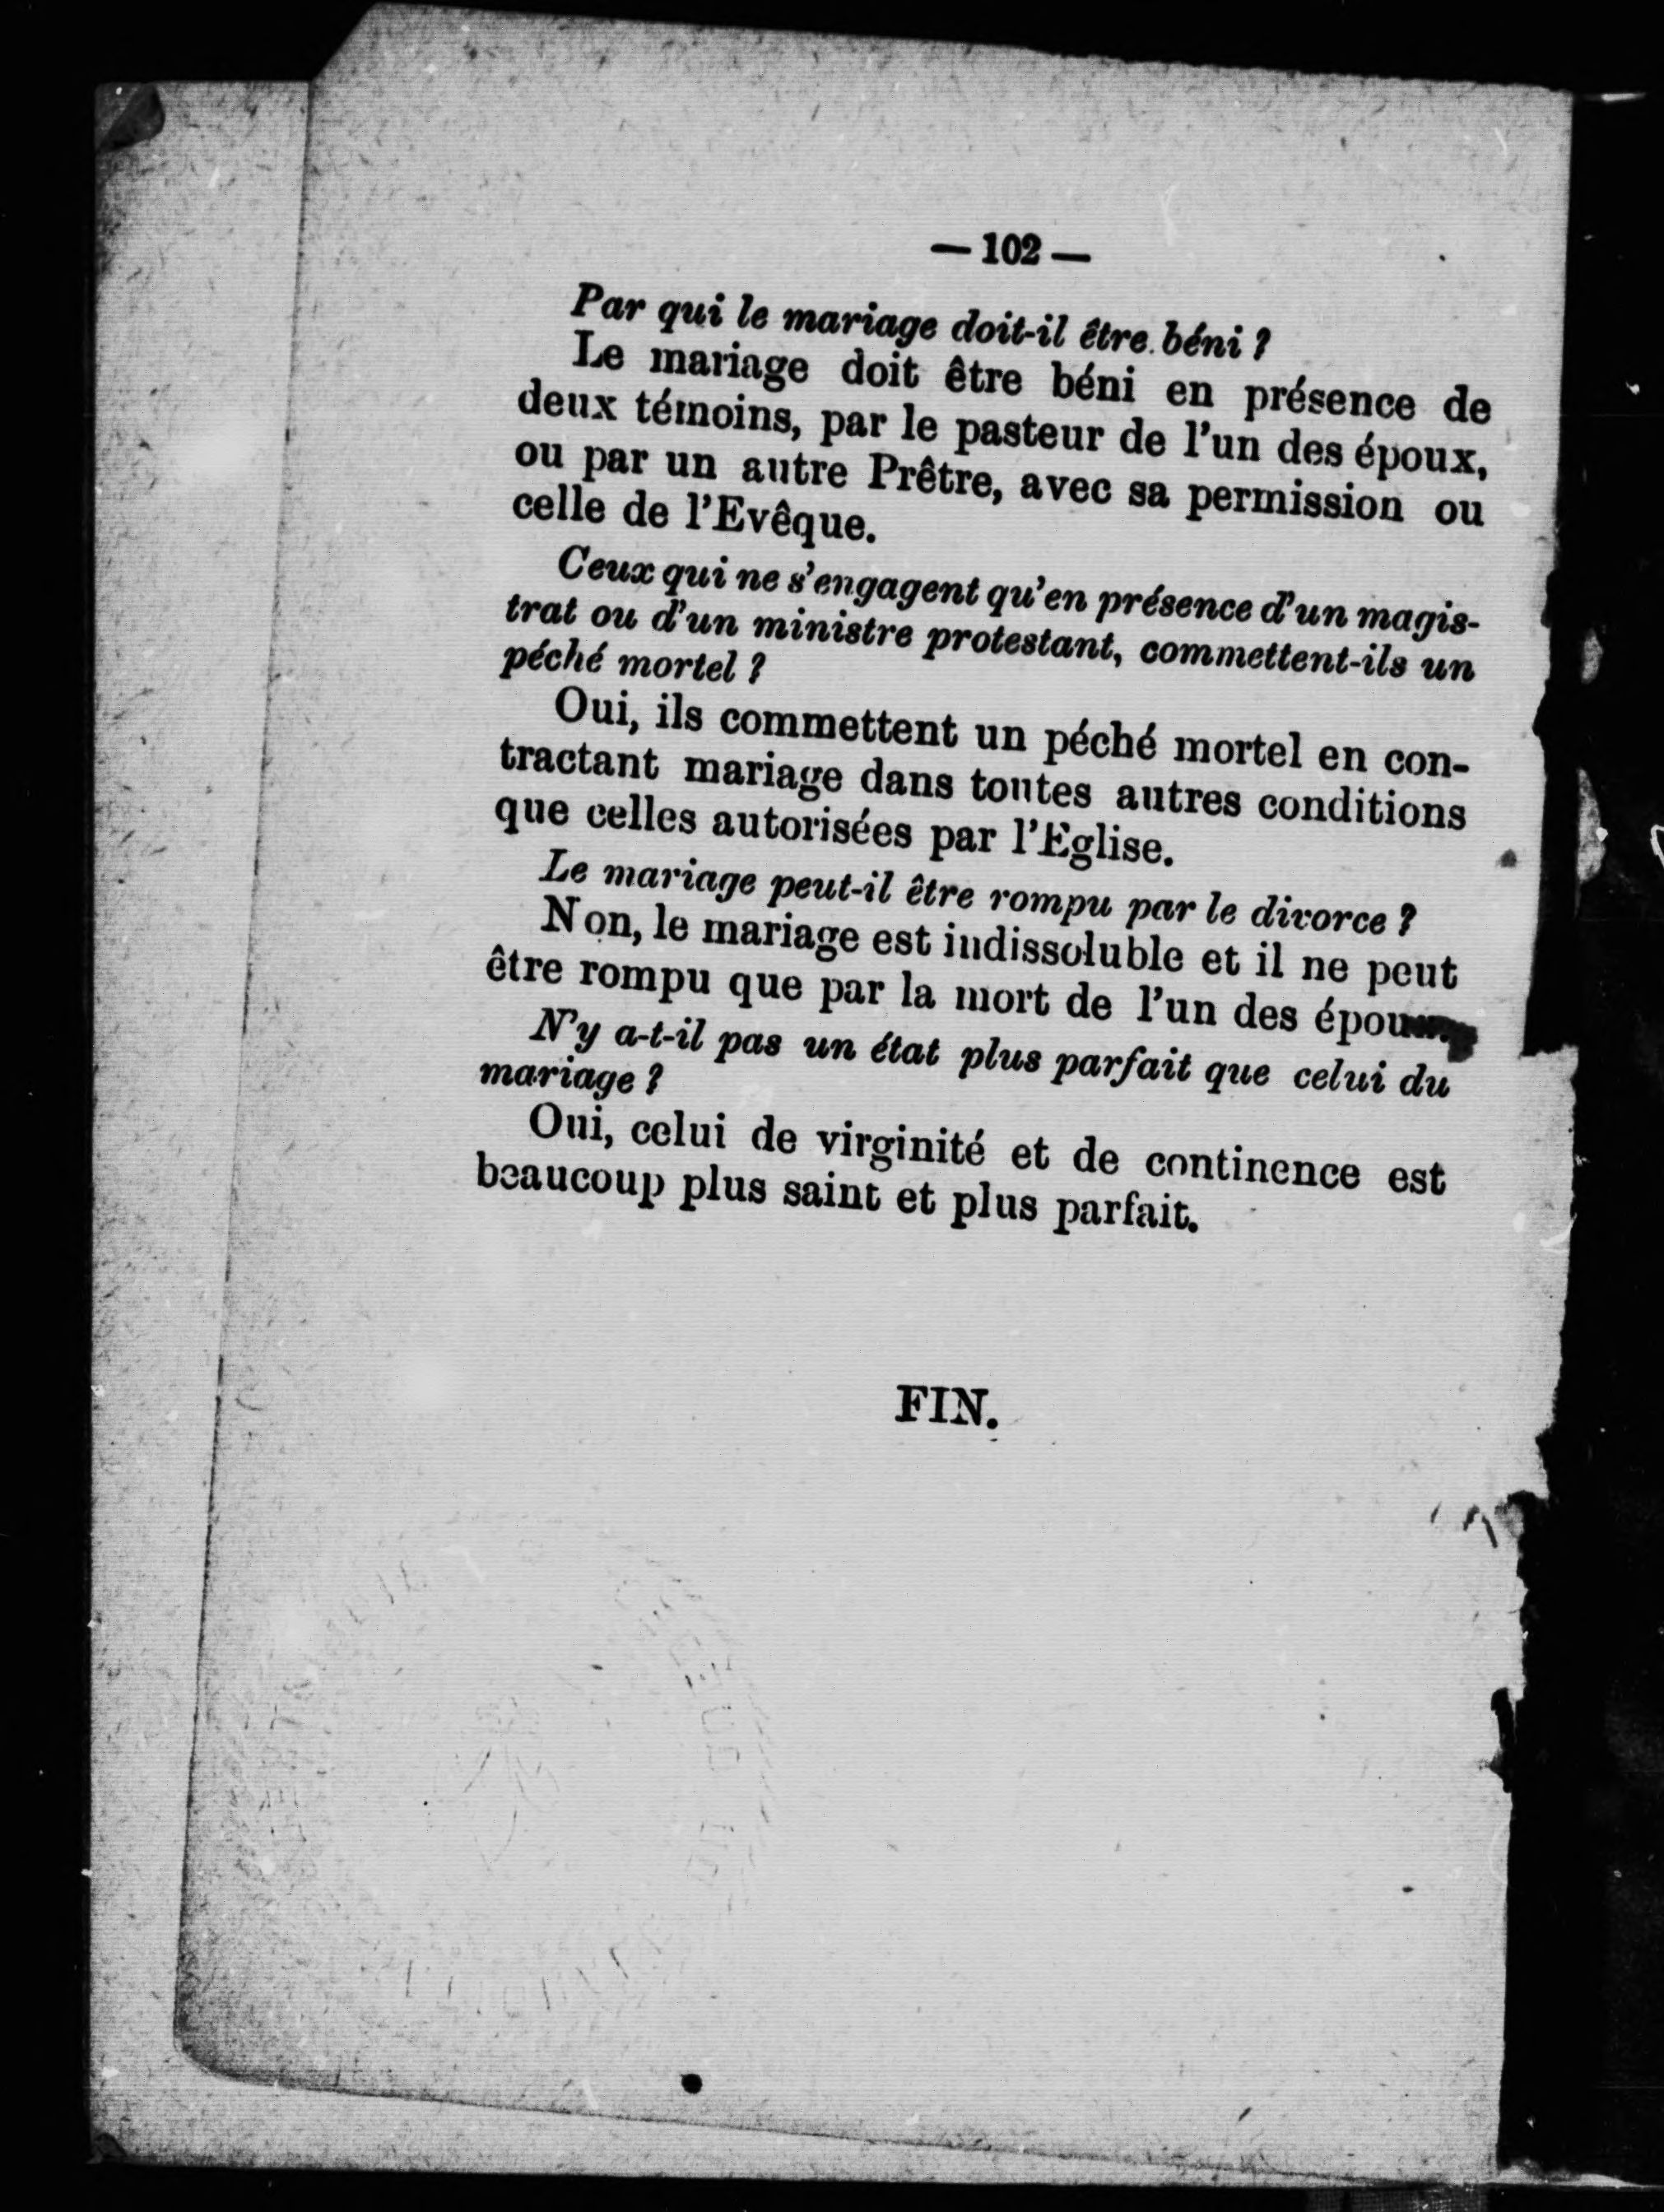 — 102 —
Par qui le mariage doit-il être béni ?
Le mariage doit être béni en présence de
deux témoins, par le pasteur de l'un des époux,
ou par un autre Prêtre, avec sa permission ou
celle de l'Evêque.
Ceux qui ne s'engagent qu'en présence d'un magis-
trat ou d'un ministre protestant, commettent-ils un
péché mortel ?
Oui, ils commettent un péché mortel en con-
tractant mariage dans toutes autres conditions
que celles autorisées par l'Eglise.
Le mariage peut-il être rompu par le divorce ?
Non, le mariage est indissoluble et il ne peut
être rompu que par la mort de l'un des époux.
N'y a-t-il pas un état plus parfait que celui du
mariage ?
Oui, celui de virginité et de continence est
beaucoup plus saint et plus parfait.
FIN.